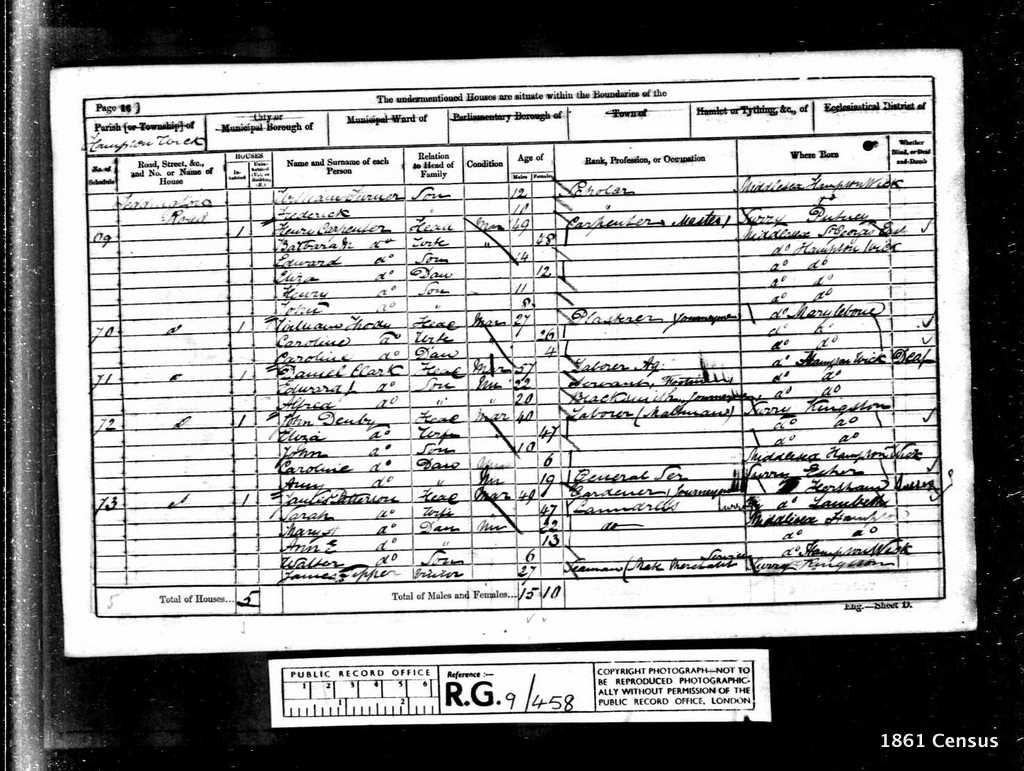 The undermentioned Houses are situate within the Boundaries of the
Page
Parish [or Township] of
City or Municipal Borough of
Municipal Ward of
Parliamentary Borough of
Town of
Hamlet or Tything, &c., of
Ecclesiastical District of
Hampton Wick
No. of Schedule
Road, Street, &c., and No. or Name of House
HOUSES
Inhabited
Name and Surname of each Person
Relation to Head of Family
Condition
Age of
Males
Females
Rank, Profession, or Occupation
Where Born
Whether Blind, or Deaf and-Dumb
Road
William Turner Son 12 Scholar Middlesex Hampton Wick
Frederick " 10 " do
69 1 Henry Carpenter Head Mar 49 Carpenter (Master) Surry Putney
Barbara do Wife " 38 Middlesex St Georges East
Edward do Son 14 do Hampton Wick
Eliza do Dau 12 do do
Henry do Son 11 do do
John do " 8 do do
70 do 1 William Head Mar 27 Plasterer Journeyman do Marylebone
Caroline do Wife " 26 do do
Caroline do Dau 4 do do
71 1 Daniel Clark Head 57 Laborer Ag: do Hampton Wick Deaf
Edward J do Son Un 22 Servant do do
Alfred do " " 20 Blacksmith Journeyman do do
72 do 1 John Denby Head Mar 40 Laborer Surry Kingston
Eliza do Wife 47 do do
John do Son 10 do do
Caroline do Dau 6 Middlesex Hampton Wick
Amy do " Un 19 General Ser Surry Esher
73 do 1 Patterson Head Mar 49 Gardener Journeyman
Sarah do Wife 47 Laundress do Lambeth
Mary do Dau Un 22 do Middlesex Hampton
Ann E do " 13 do do
Walter do Son 6 do Hampton Wick
James Tipper Visitor 27 Seaman Surry Kingston
5
Total of Houses... 5
Total of Males and Females... 15 10
Eng.—Sheet D.
PUBLIC RECORD OFFICE
1 2 3 4 5 6
1 2
Reference :—
R.G. 9/458
COPYRIGHT PHOTOGRAPH—NOT TO
BE REPRODUCED PHOTOGRAPHIC-
ALLY WITHOUT PERMISSION OF THE
PUBLIC RECORD OFFICE, LONDON
1861 Census